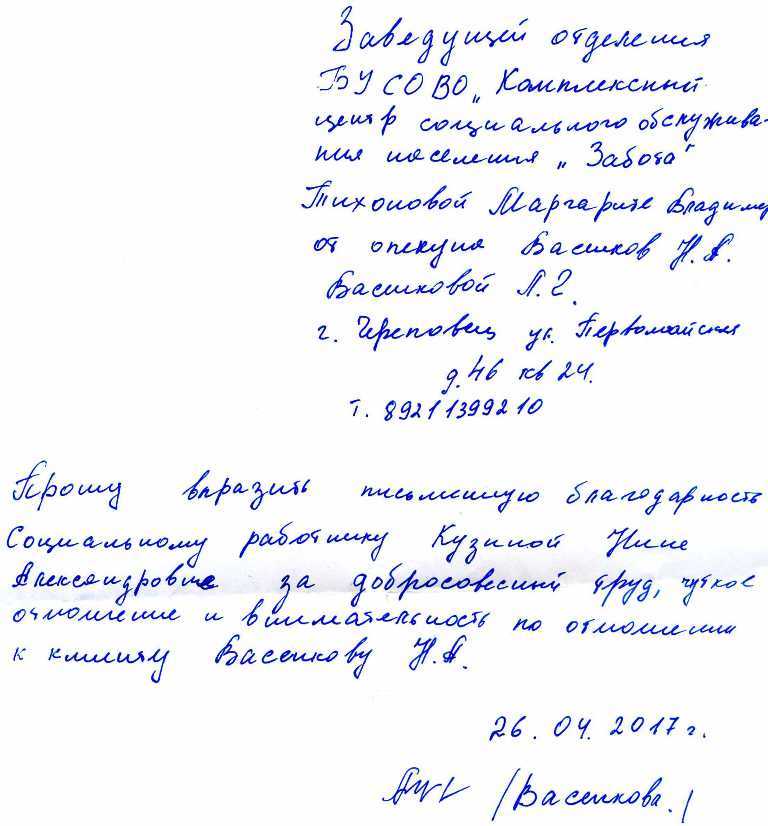 Заведущей отделения
БУ СО ВО „Комплексный
центр социального обслужива-
ния населения „Забота"
Тихоновой Маргарите Владимир
от опекуна Васенков Н.А.
Васенковой Л.Г.
г. Череповец ул. Первомайская
д. 46 кв 24.
т. 89211399210
Прошу выразить письменную благодарность
Социальному работнику Кузиной Нине
Александровне за добросовесный труд, чуткое
отношение и внимательность по отношении
к клиенту Васенкову Н.А.
26. 04. 2017 г.
/Васенкова./